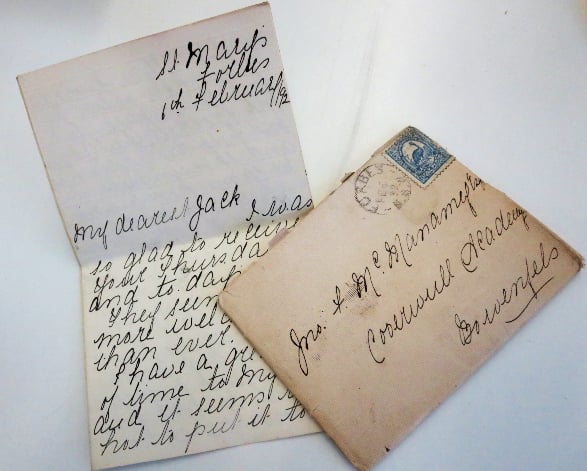 St. Mary's
Forbes
6th February/92
My dearest Jack
I was
so glad to receive
your Thursda
and to day
They seem
more welc
than ever.
I have a gre
of time to my
and it seems
not to put it to
FORBES
Jno. F. McManamey
Cooerwull Academy
Bowenfels